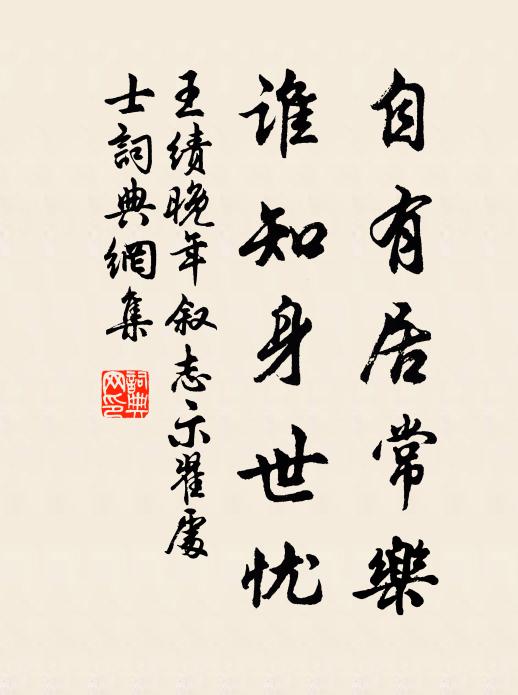 自有居常樂
誰知身世忧
王績晚年叙志示翟處
士詞典網集
詞典網印